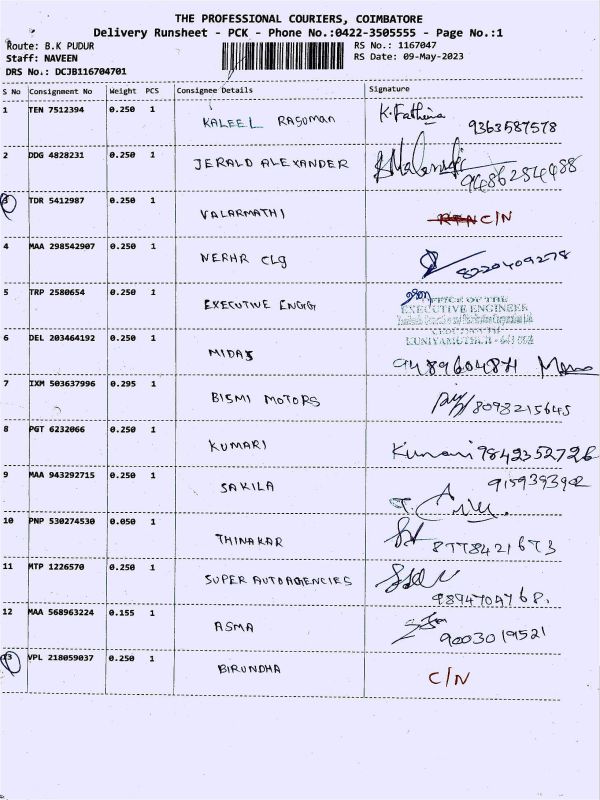 THE PROFESSIONAL COURIERS, COIMBATORE
Delivery Runsheet - PCK - Phone No.:0422-3505555 - Page No.:1
Route: B.K PUDUR
RS No.: 1167047
Staff: NAVEEN
RS Date: 09-May-2023
DRS No.: DCJB116704701
S No Consignment No Weight PCS Consignee Details Signature
1 TEN 7512394 0.250 1 KALEEL RAGUMAN K. Fathima
9363587578
2 DDG 4828231 0.250 1 JERALD ALEXANDER
9486284488
3 TDR 5412987 0.250 1 VALARMATHI C/N
4 MAA 298542907 0.250 1 NERHR Clg 8220409278
5 TRP 2580654 0.250 1 EXECUTIVE ENGG
OFFICE OF THE
EXECUTIVE ENGINEER
6 DEL 203464192 0.250 1 MIDAS
KUNIYAMUTHUR
7 IXM 503637996 0.295 1 BISMI MOTORS 8098215645
8 PGT 6232066 0.250 1 KUMARI Kumari 9842352726
9 MAA 943292715 0.250 1 SAKILA 9159393902
10 PNP 530274530 0.050 1 THINAKAR 8778421673
11 MTP 1226570 0.250 1 SUPER AUTOAGENCIES
9894704768.
12 MAA 568963224 0.155 1 ASMA 9003019521
13 VPL 218059037 0.250 1 BIRUNDHA C/N